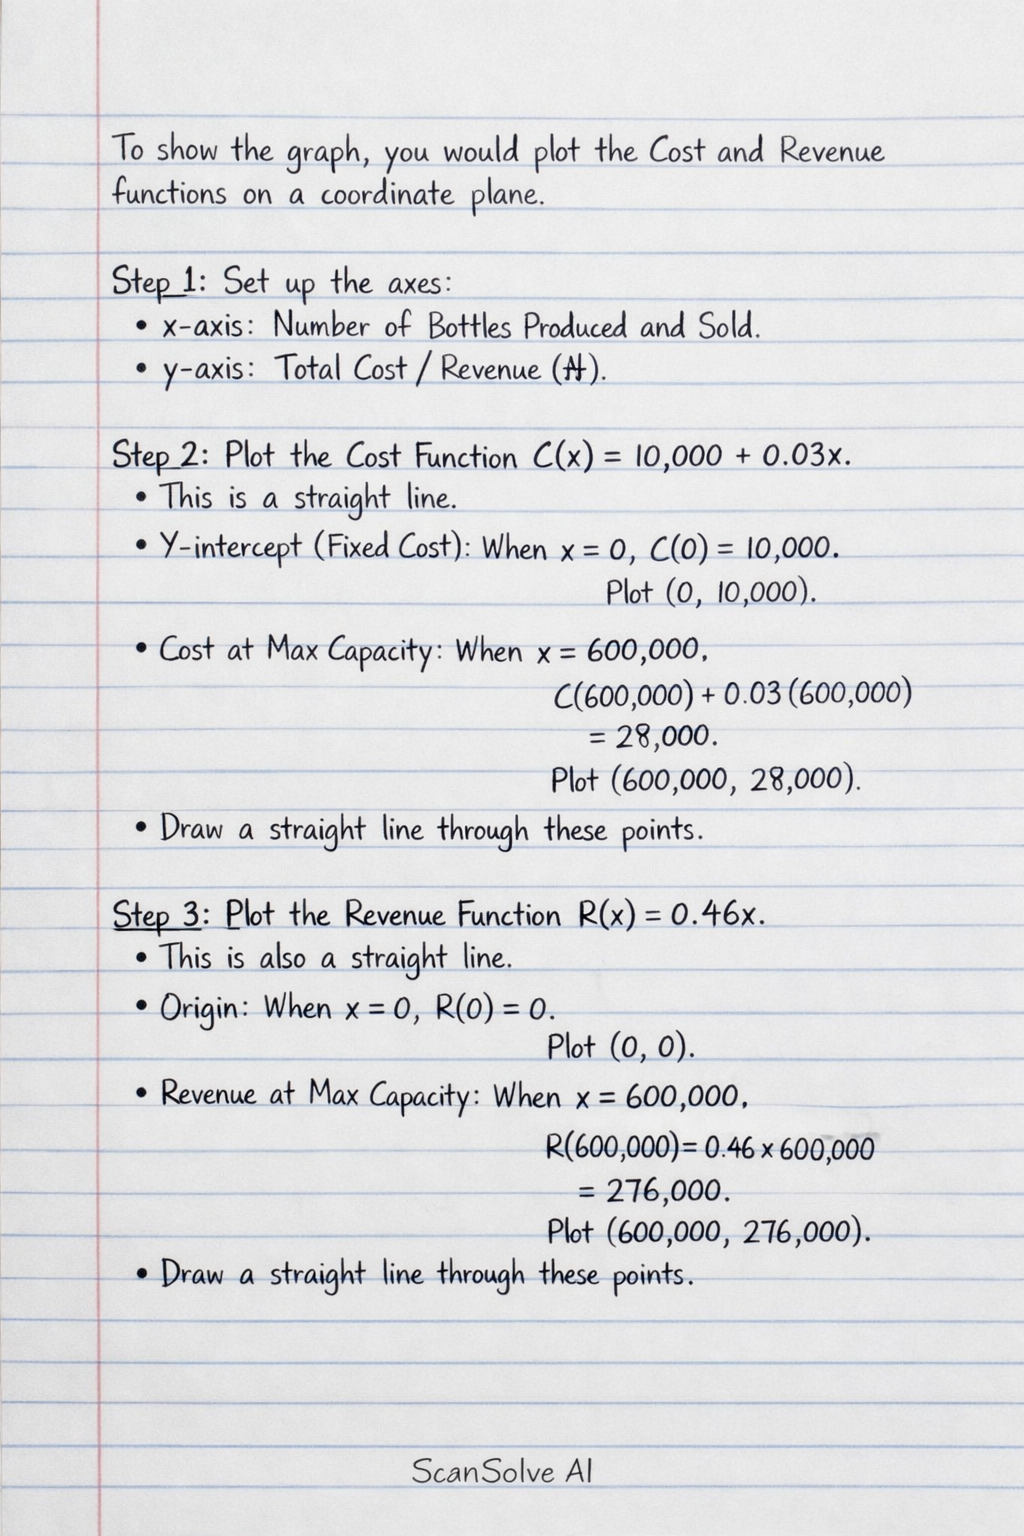 To show the graph, you would plot the Cost and Revenue
functions on a coordinate plane.
Step 1: Set up the axes:
• x-axis: Number of Bottles Produced and Sold.
• y-axis: Total Cost / Revenue (₦).
Step 2: Plot the Cost Function C(x) = 10,000 + 0.03x.
• This is a straight line.
• Y-intercept (Fixed Cost): When x = 0, C(0) = 10,000.
Plot (0, 10,000).
• Cost at Max Capacity: When x = 600,000,
C(600,000) + 0.03 (600,000)
= 28,000.
Plot (600,000, 28,000).
• Draw a straight line through these points.
Step 3: Plot the Revenue Function R(x) = 0.46x.
• This is also a straight line.
• Origin: When x = 0, R(0) = 0.
Plot (0, 0).
• Revenue at Max Capacity: When x = 600,000,
R(600,000) = 0.46 x 600,000
= 276,000.
Plot (600,000, 276,000).
• Draw a straight line through these points.
ScanSolve AI